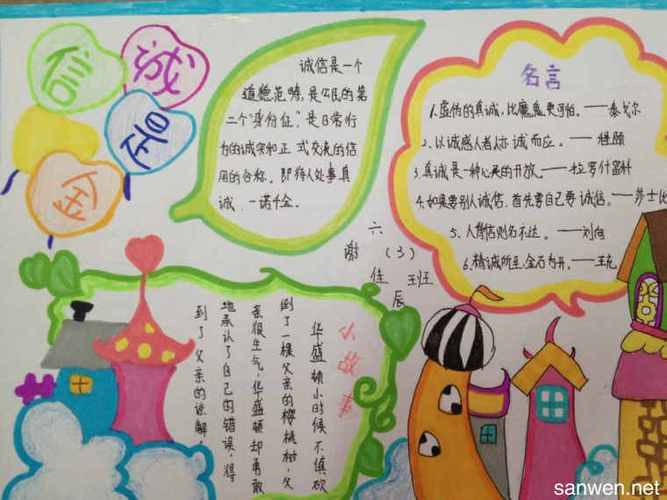 诚
信
是
金
诚信是一个
道德范畴,是公民的第
二个“身份证”,是日常行
为的诚实和正式交流的信
用的合称。即待人处事真
诚、一诺千金。
名言
1.虚伪的真诚,比魔鬼更可怕。——泰戈尔
2.以诚感人者,人亦诚而应。——程颐
3.真诚是一种心灵的开放。——拉罗什富科
4.如果要别人诚信,首先要自己要诚信。——莎士比
5.人背信则名不达。——刘向
6.精诚所至,金石为开。——王充
六(3)班
谢佳辰
小故事
华盛顿小时候不慎砍
倒了一棵父亲的樱桃树,父
亲很生气,华盛顿却勇敢
地承认了自己的错误,得
到了父亲的谅解。
sanwen.net